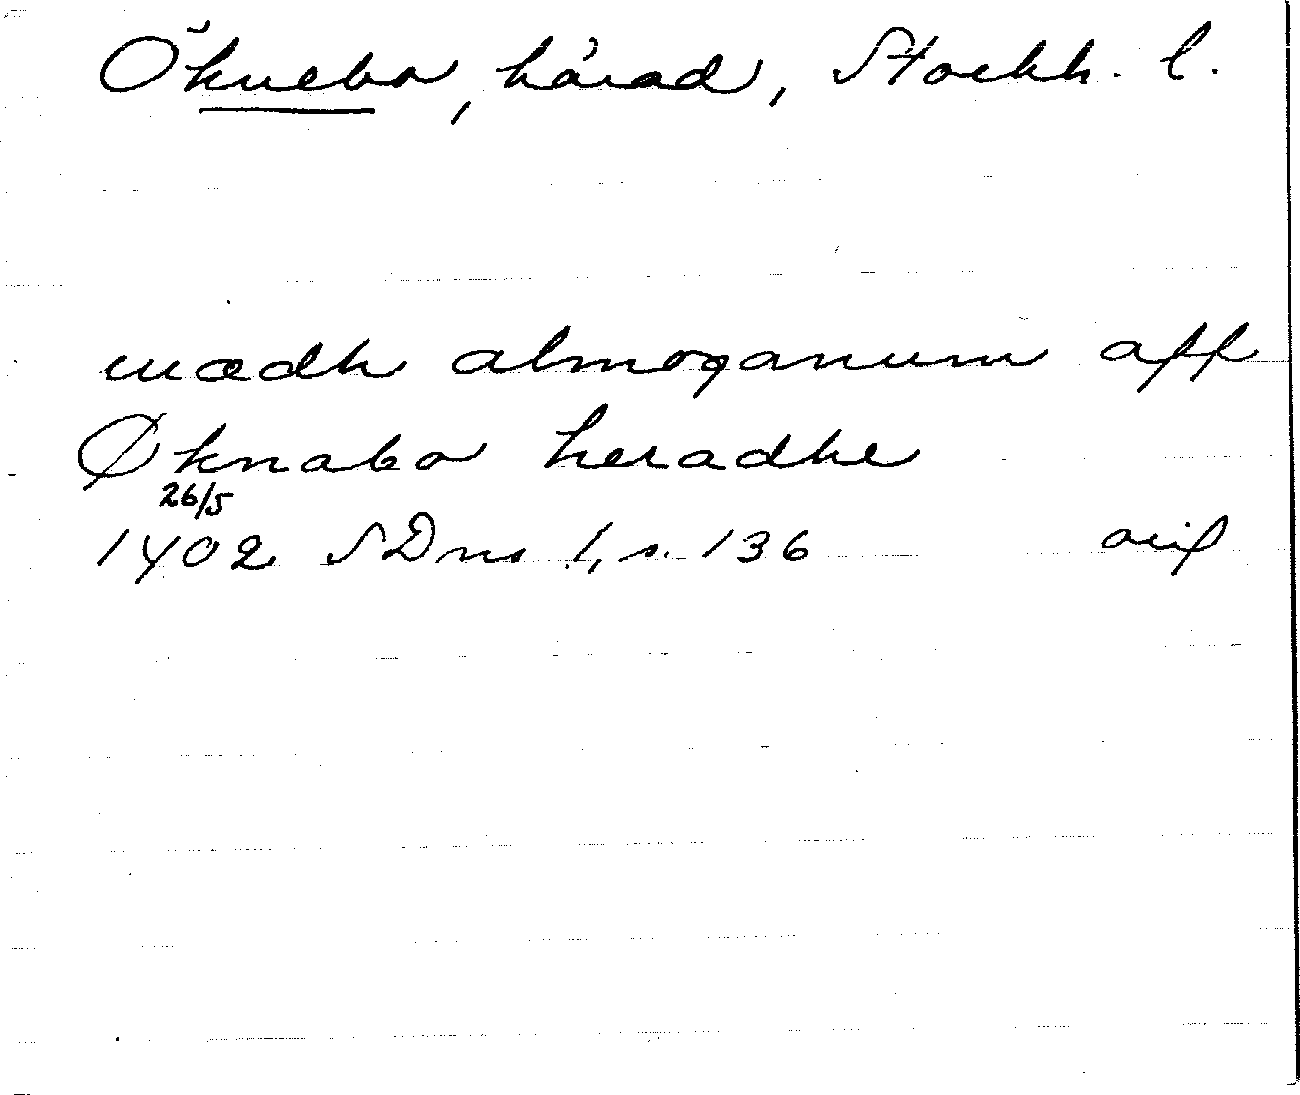 Öknebo, härad, Stockh. l.
mædh almoganum aff
Øknabo heradhe
26/5
1402 SDns 1, s. 136 avs